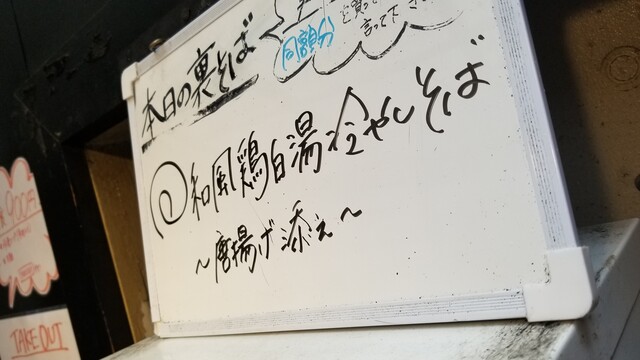 本日の裏そば
同額分
を買って
言って下さ
@和風鶏白湯冷やしそば
~唐揚げ添え~
900円
TAKE OUT